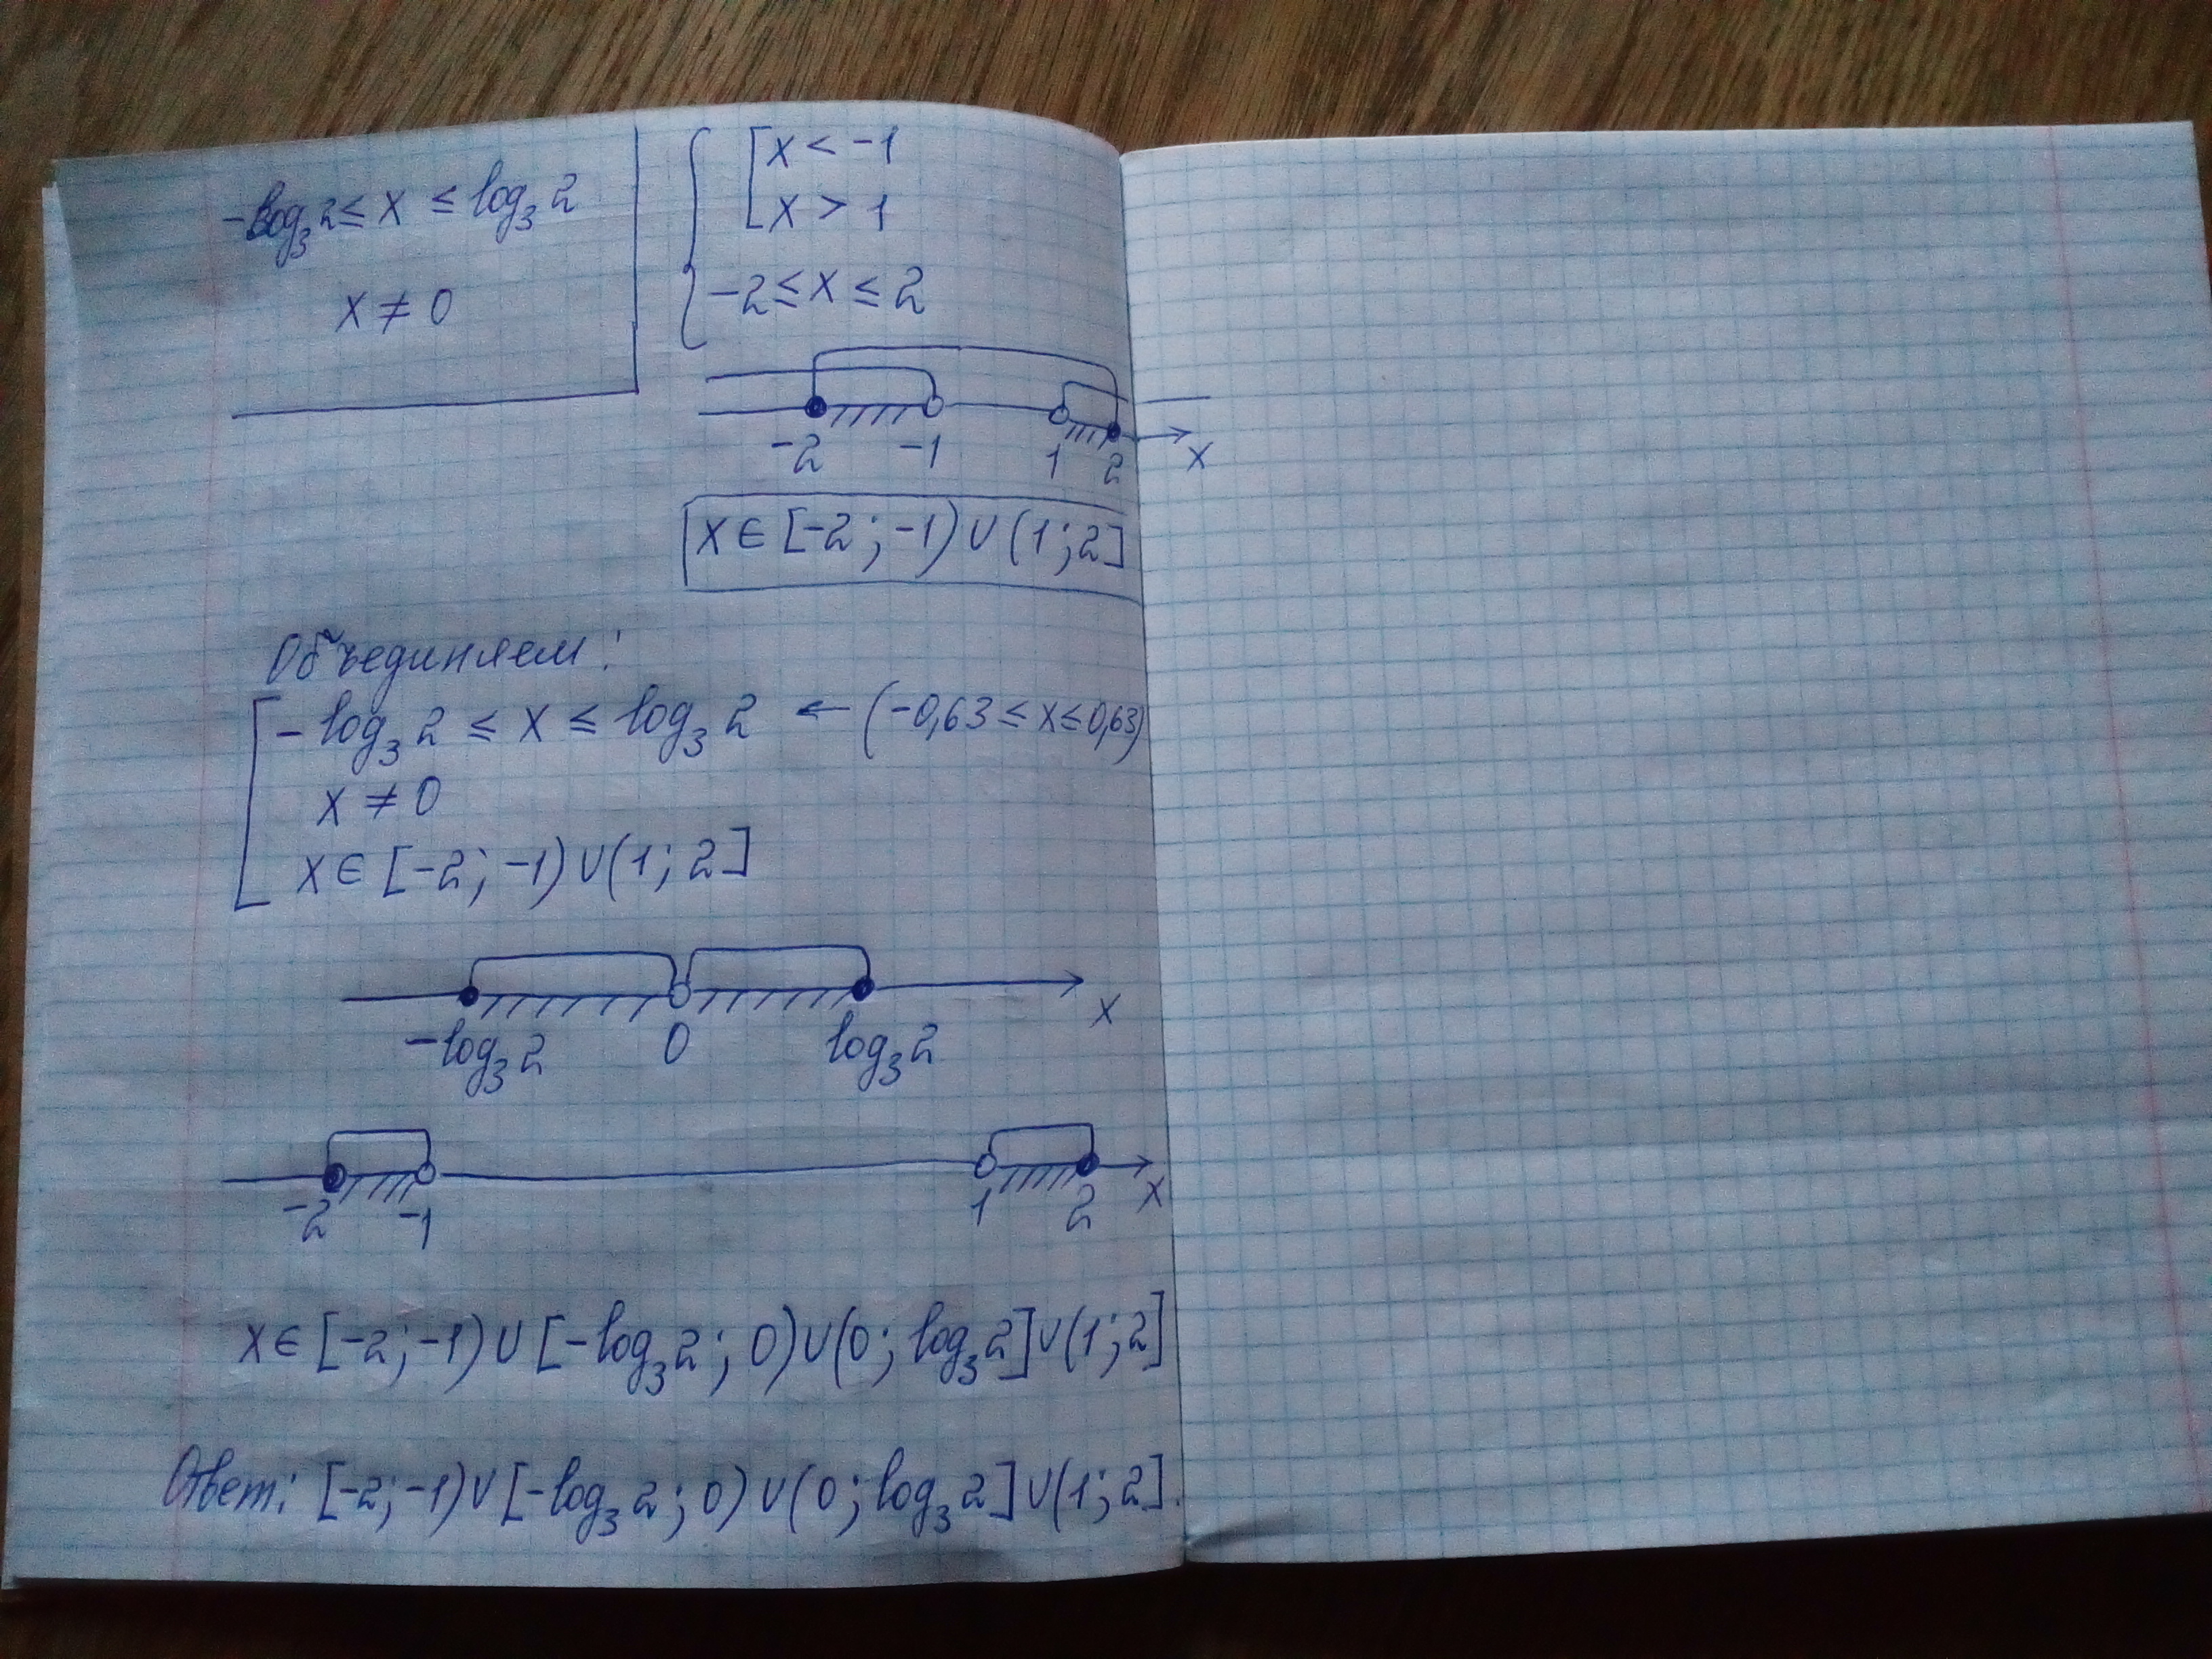 -log₃2 ≤ x ≤ log₃2
x ≠ 0
x < -1
x > 1
-2 ≤ x ≤ 2
-2 -1 1 2 x
x ∈ [-2; -1) ∪ (1; 2]
Объединяем:
-log₃2 ≤ x ≤ log₃2 ← (-0,63 ≤ x ≤ 0,63)
x ≠ 0
x ∈ [-2; -1) ∪ (1; 2]
-log₃2 0 log₃2 x
-2 -1 1 2 x
x ∈ [-2; -1) ∪ [-log₃2; 0) ∪ (0; log₃2] ∪ (1; 2]
Ответ: [-2; -1) ∪ [-log₃2; 0) ∪ (0; log₃2] ∪ (1; 2].